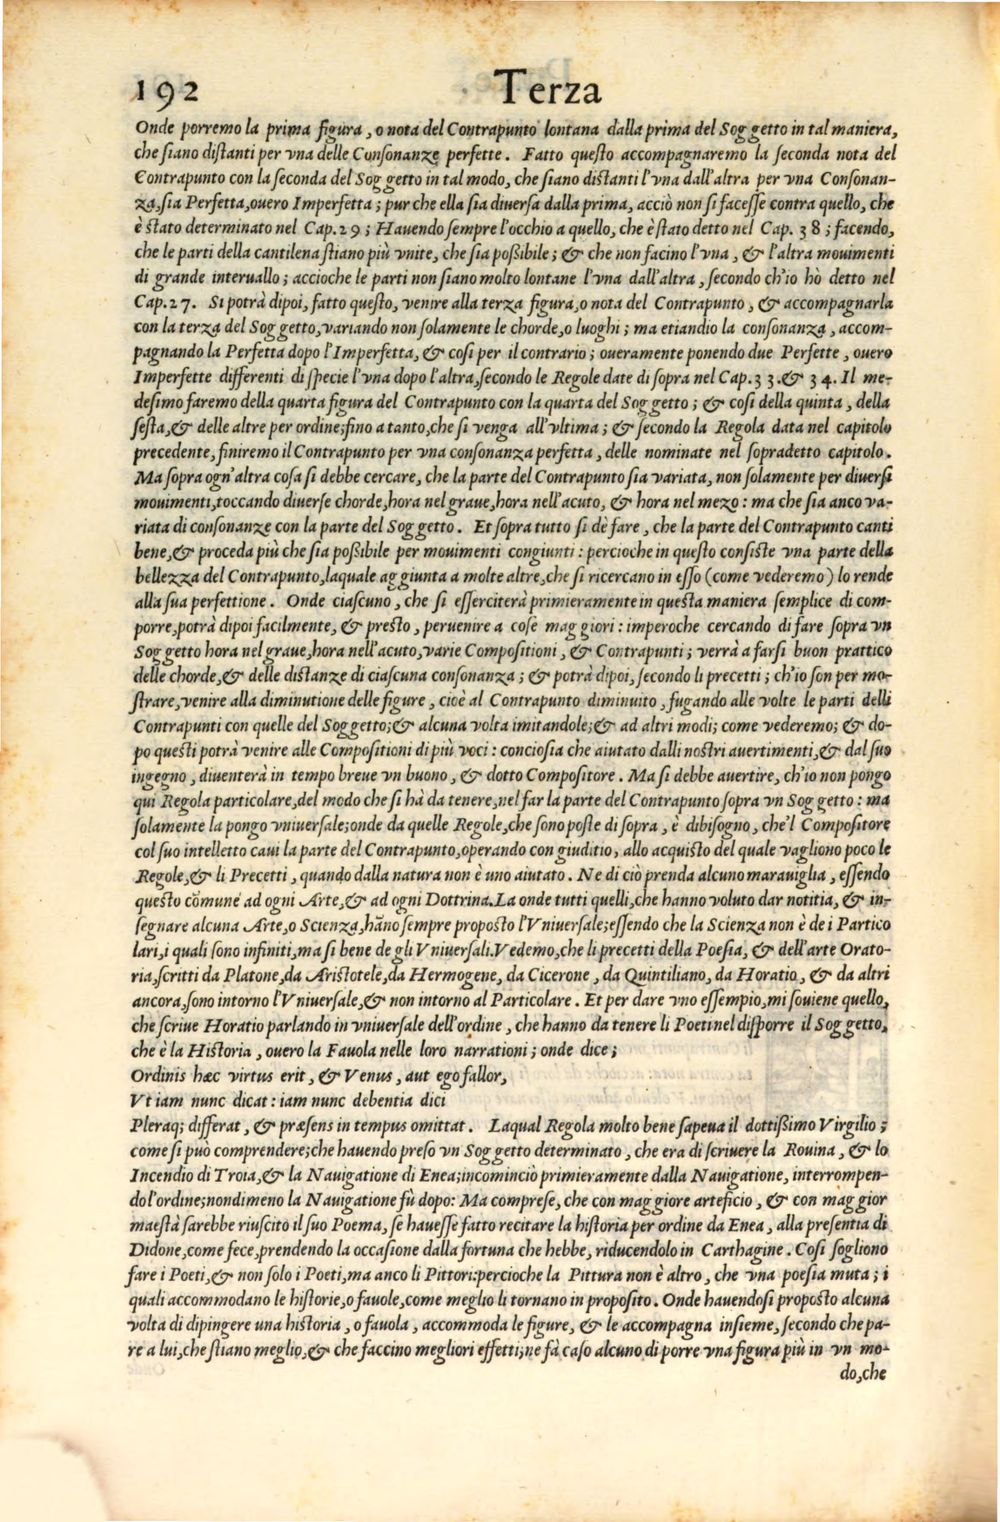 192 Terza
Onde porremo la prima figura, o nota del Contrapunto lontana dalla prima del Soggetto in tal maniera,
che ſiano diſtanti per vna delle Conſonanze perfette. Fatto queſto accompagnaremo la ſeconda nota del
Contrapunto con la ſeconda del Soggetto in tal modo, che ſiano diſtanti l'vna dall'altra per vna Conſonan-
za, ſia Perfetta, ouero Imperfetta; pur che ella ſia diuerſa dalla prima, acciò non ſi faceſſe contra quello, che
è ſtato determinato nel Cap. 29; Hauendo ſempre l'occhio a quello, che è ſtato detto nel Cap. 38; facendo,
che le parti della cantilena ſtiano più vnite, che ſia poſſibile; & che non facino l'vna, & l'altra mouimenti
di grande interuallo; accioche le parti non ſiano molto lontane l'vna dall'altra, ſecondo ch'io hò detto nel
Cap. 27. Si potrà dipoi, fatto queſto, venire alla terza figura, o nota del Contrapunto, & accompagnarla
con la terza del Soggetto, variando non ſolamente le chorde, o luoghi; ma etiandio la conſonanza, accom-
pagnando la Perfetta dopo l'Imperfetta, & coſi per il contrario; oueramente ponendo due Perfette, ouero
Imperfette differenti di ſpecie l'vna dopo l'altra, ſecondo le Regole date di ſopra nel Cap. 33. & 34. Il me-
deſimo faremo della quarta figura del Contrapunto con la quarta del Soggetto; & coſi della quinta, della
ſeſta, & delle altre per ordine; fino a tanto, che ſi venga all'vltima; & ſecondo la Regola data nel capitolo
precedente, finiremo il Contrapunto per vna conſonanza perfetta, delle nominate nel ſopradetto capitolo.
Ma ſopra ogn'altra coſa ſi debbe cercare, che la parte del Contrapunto ſia variata, non ſolamente per diuerſi
mouimenti, toccando diuerſe chorde, hora nel graue, hora nell'acuto, & hora nel mezo: ma che ſia anco va-
riata di conſonanze con la parte del Soggetto. Et ſopra tutto ſi de fare, che la parte del Contrapunto canti
bene, & proceda più che ſia poſſibile per mouimenti congiunti: percioche in queſto conſiſte vna parte della
bellezza del Contrapunto, laquale aggiunta a molte altre, che ſi ricercano in eſſo (come vederemo) lo rende
alla ſua perfettione. Onde ciaſcuno, che ſi eſſerciterà primieramente in queſta maniera ſemplice di com-
porre, potrà dipoi facilmente, & preſto, peruenire a coſe maggiori: imperoche cercando di fare ſopra vn
Soggetto hora nel graue, hora nell'acuto, varie Compoſitioni, & Contrapunti; verrà a farſi buon prattico
delle chorde, & delle diſtanze di ciaſcuna conſonanza; & potrà dipoi, ſecondo li precetti; ch'io ſon per mo-
ſtrare, venire alla diminutione delle figure, cioè al Contrapunto diminuito, fugando alle volte le parti delli
Contrapunti con quelle del Soggetto; & alcuna volta imitandole; & ad altri modi; come vederemo; & do-
po queſti potrà venire alle Compoſitioni di più voci: concioſia che aiutato dalli noſtri auertimenti, & dal ſuo
ingegno, diuenterà in tempo breue vn buono, & dotto Compoſitore. Ma ſi debbe auertire, ch'io non pongo
qui Regola particolare, del modo che ſi hà da tenere, nel far la parte del Contrapunto ſopra vn Soggetto: ma
ſolamente la pongo vniuerſale; onde da quelle Regole, che ſono poſte di ſopra, è dibiſogno, che'l Compoſitore
col ſuo intelletto caui la parte del Contrapunto, operando con giuditio, allo acquiſto del quale vagliono poco le
Regole, & li Precetti, quando dalla natura non è uno aiutato. Ne di ciò prenda alcuno marauiglia, eſſendo
queſto cõmune ad ogni Arte, & ad ogni Dottrina. La onde tutti quelli, che hanno voluto dar notitia, & in-
ſegnare alcuna Arte, o Scienza, hãno ſempre propoſto l'Vniuerſale; eſſendo che la Scienza non è de i Partico
lari, i quali ſono infiniti, ma ſi bene degli Vniuerſali. Vedemo, che li precetti della Poeſia, & dell'arte Orato-
ria, ſcritti da Platone, da Ariſtotele, da Hermogene, da Cicerone, da Quintiliano, da Horatio, & da altri
ancora, ſono intorno l'Vniuerſale, & non intorno al Particolare. Et per dare vno eſſempio, mi ſouiene quello,
che ſcriue Horatio parlando in vniuerſale dell'ordine, che hanno da tenere li Poeti nel diſporre il Soggetto,
che è la Hiſtoria, ouero la Fauola nelle loro narrationi; onde dice;
Ordinis hæc virtus erit, & Venus, aut ego fallor,
Vt iam nunc dicat: iam nunc debentia dici
Pleraq; differat, & præſens in tempus omittat. Laqual Regola molto bene ſapeua il dottiſſimo Virgilio;
come ſi può comprendere; che hauendo preſo vn Soggetto determinato, che era di ſcriuere la Rouina, & lo
Incendio di Troia, & la Nauigatione di Enea; incominciò primieramente dalla Nauigatione, interrompen-
do l'ordine; nondimeno la Nauigatione fù dopo: Ma compreſe, che con maggiore arteficio, & con maggior
maeſtà ſarebbe riuſcito il ſuo Poema, ſe haueſſe fatto recitare la hiſtoria per ordine da Enea, alla preſentia di
Didone, come fece, prendendo la occaſione dalla fortuna che hebbe, riducendolo in Carthagine. Coſi ſogliono
fare i Poeti, & non ſolo i Poeti, ma anco li Pittori: percioche la Pittura non è altro, che vna poeſia muta; i
quali accommodano le hiſtorie, o fauole, come meglio li tornano in propoſito. Onde hauendoſi propoſto alcuna
volta di dipingere una hiſtoria, o fauola, accommoda le figure, & le accompagna inſieme, ſecondo che pa-
re a lui, che ſtiano meglio, & che faccino megliori effetti; ne fà caſo alcuno di porre vna figura più in vn mo-
do, che